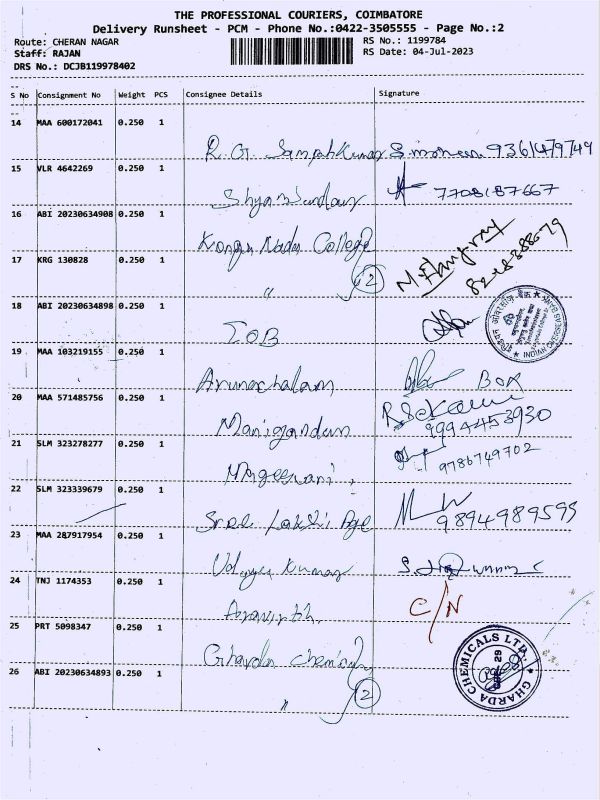 THE PROFESSIONAL COURIERS, COIMBATORE
Delivery Runsheet - PCM - Phone No.:0422-3505555 - Page No.:2
Route: CHERAN NAGAR
RS No.: 1199784
Staff: RAJAN
RS Date: 04-Jul-2023
DRS No.: DCJB119978402
S No Consignment No Weight PCS Consignee Details Signature
14 MAA 600172041 0.250 1
R. G. Sampath Kumar 9361479749
15 VLR 4642269 0.250 1
Shyam Sundar 7708187667
16 ABI 20230634908 0.250 1
Kongu Nadu College
17 KRG 130828 0.250 1
" 2
18 ABI 20230634898 0.250 1
IOB
INDIAN OVERSEAS BANK
19 MAA 103219155 0.250 1
Arunachalam
20 MAA 571485756 0.250 1
Manigandan 9994453930
21 SLM 323278277 0.250 1
9786749702
22 SLM 323339679 0.250 1
Sree 9894989595
23 MAA 287917954 0.250 1
Udaya Kumar
24 TNJ 1174353 0.250 1
Aravinth C/N
25 PRT 5098347 0.250 1
Gharda Chemicals
GHARDA CHEMICALS LTD.
26 ABI 20230634893 0.250 1
" 2